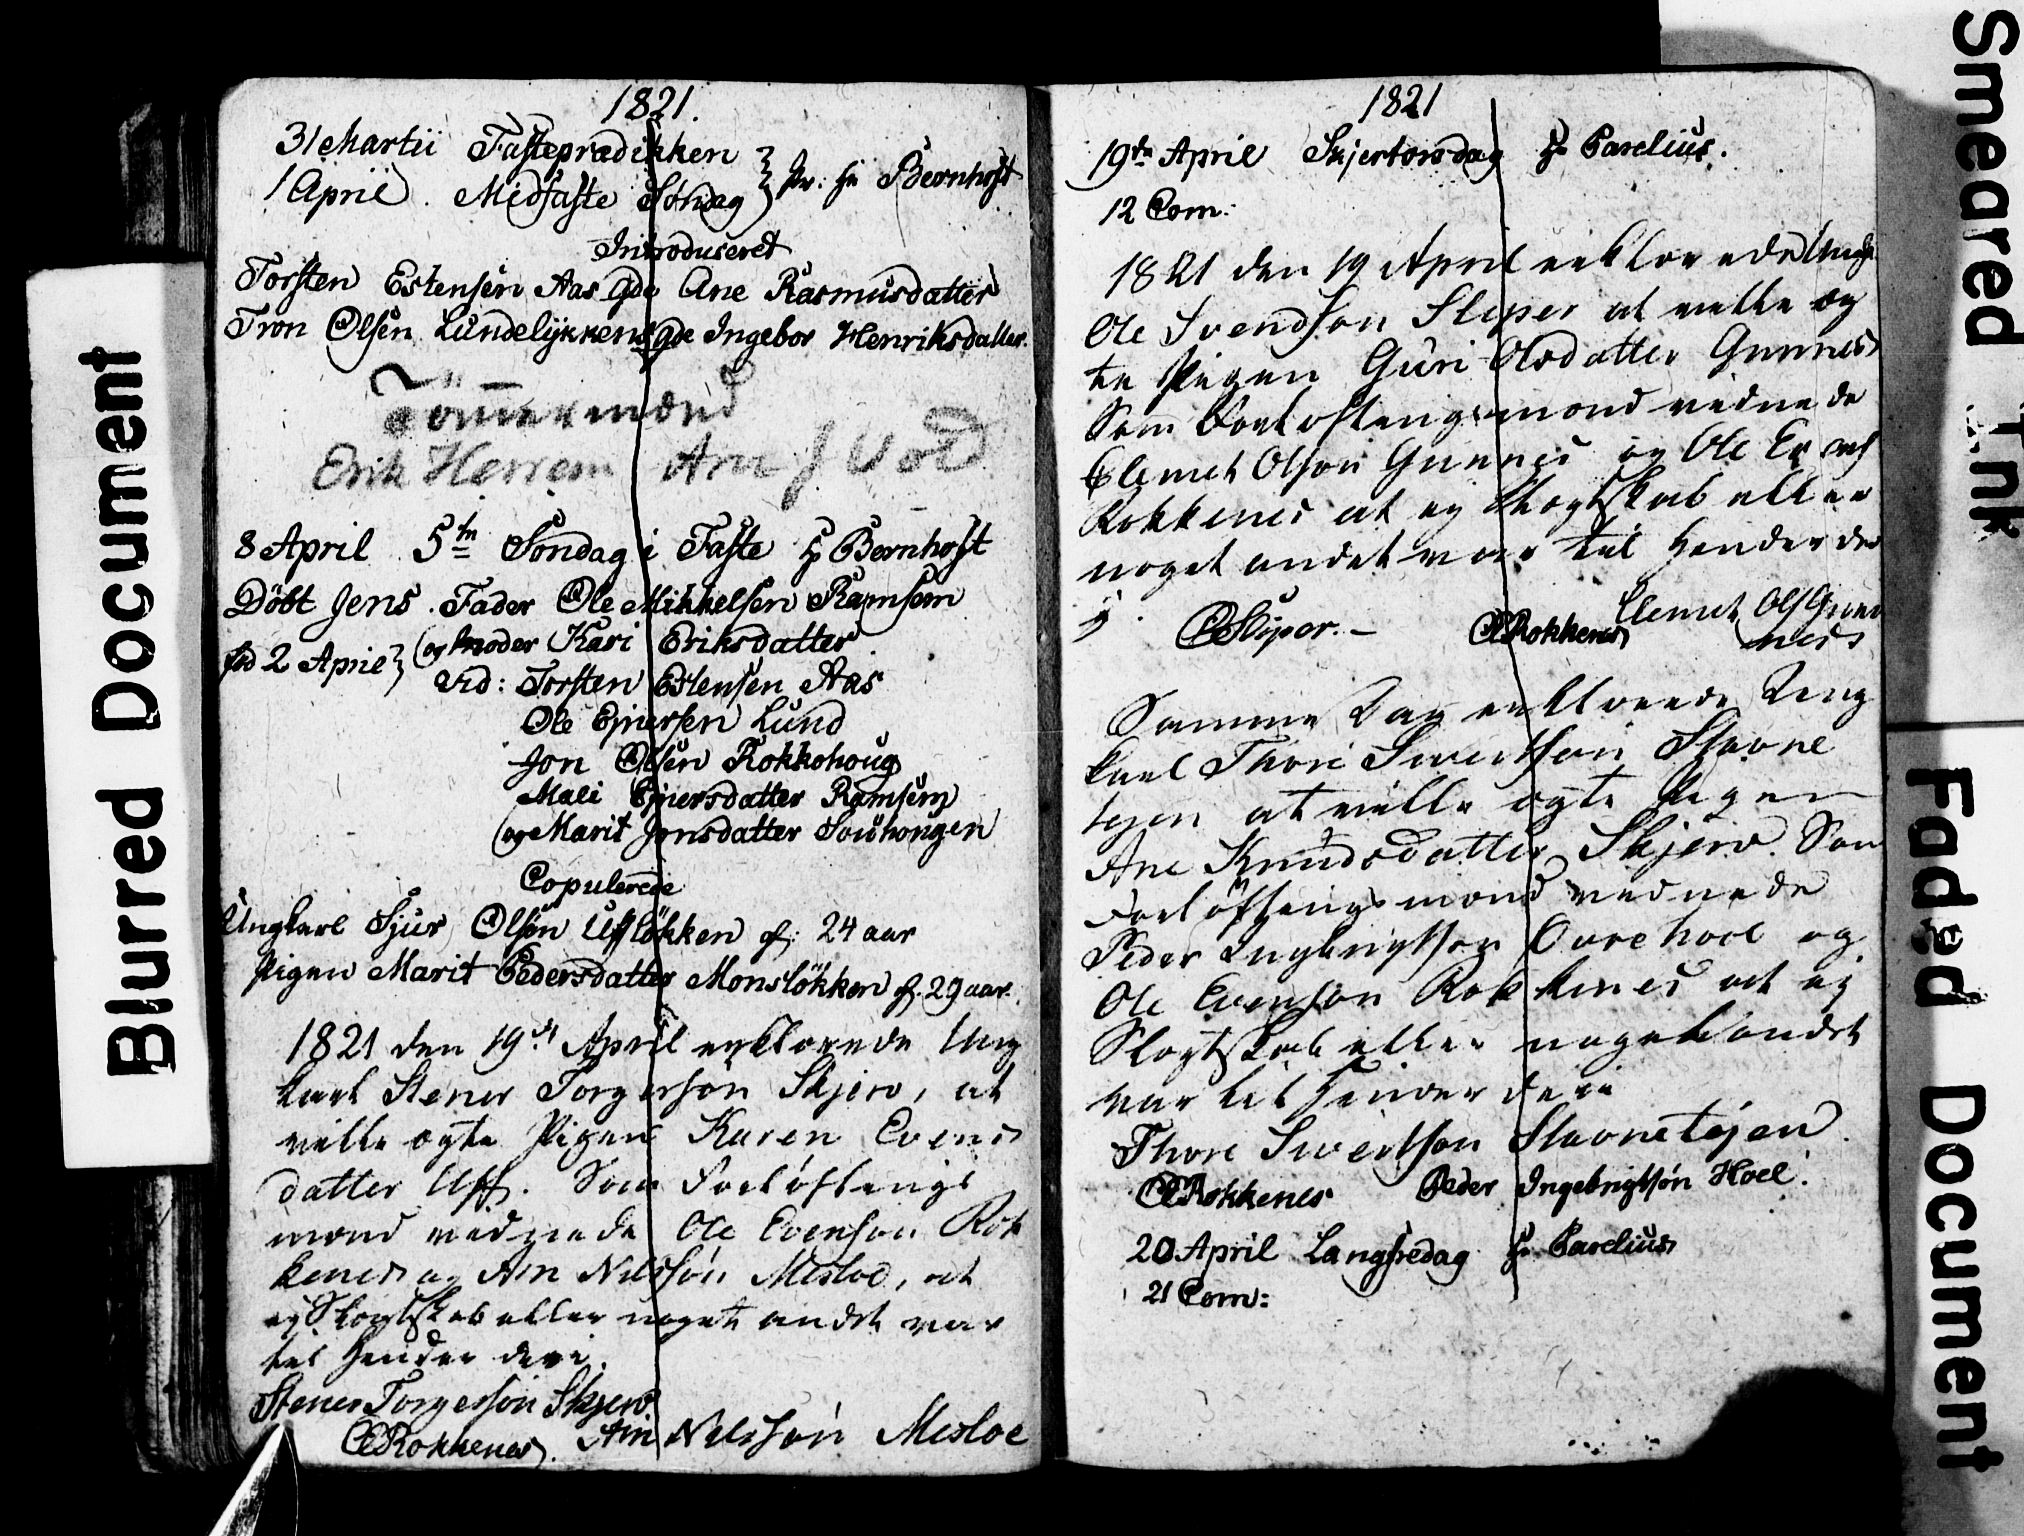 1821.
31 Martii Fasteprædikken
1 April. Midfaste Søndag } pr: Hr Bernhoft
Introduseret
Torsten Estensen Aas Gde Ane Rasmusdatter
Tron Olsen Lundeløkkens gde Ingebor Henriksdatter
Tømermænd
Erik Herrem Arn J Vold
8 April 5te Søndag i Faste Hr Bernhoft
Döbt Jens. Fader Ole Mikkelsen Ramsem
fød 2 April } og moder Kari Eriksdatter
Vid: Torsten Estensen Aas
Ole Ejnersen Lund
Jon Olsen Rokkohoug
Mali Ejnersdatter Ramsem
og Marit Jonsdatter Souhougen
Copulerede
Ungkarl Sjur Olsön Uflökken gl: 24 aar
Pigen Marit Pedersdatter Monslökken gl. 29 aar.
1821 den 19de April erklærede Ung
karl Stener Torgersön Skjerv, at
ville ægte Pigen Karen Evens
datter Uff. Som Forlöftengs
mænd vednede Ole Evensøn Rok
kenes og Arn Nilssön Mesloe, at
ej Slægtskab eller noget andet var
til Hender deri.
Stener Torgersön Skjerv
OERokkenes. Arn Nilssön Mesloe
1821
19de April Skjertorsdag Hr Parelius.
12 Com:
1821 den 19 April erklærede Ungk
Ole Svendsøn Sliper at ville æg
te Pigen Guri Olsdatter Gunnes
Som Forloftengsmænd vednede
Clemet Olsøn Gunnes og Ole Evens
Rokkenes at ej Slægtskab eller
noget andet var til Hender der
i. OSliper.- OERokkenes Clemet Ols Gun
nes
Samme Dag erklærede Ung
karl Thore Sivertsøn Stavne
tejen at ville ægte Pigen
Ane Knudsdatter Skjerv. Som
Forlöftengsmænd vednede
Peder Engbrigtsøn Hoel og
Ole Evensøn Rokkenes at ej
Slægtskab eller noget andet
var til Hinder deri
Thore Sivertsøn Stavnetejen.
OERokkenes Peder Ingebrigtsøn Hoel.
20 April Langfredag Hr Parelius
21 Com:
Blurred Document
Smeared Ink
Faded Document